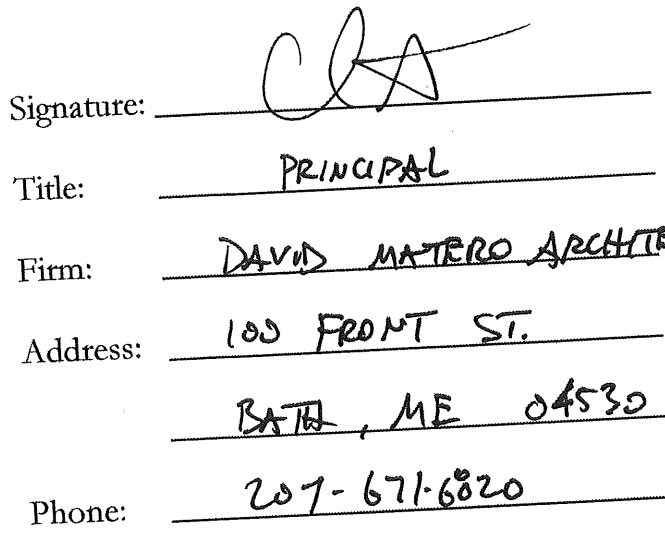 Signature:
Title: PRINCIPAL
Firm: DAVID MATERO ARCHITE
Address: 100 FRONT ST.
BATH, ME 04530
Phone: 207-671-6020